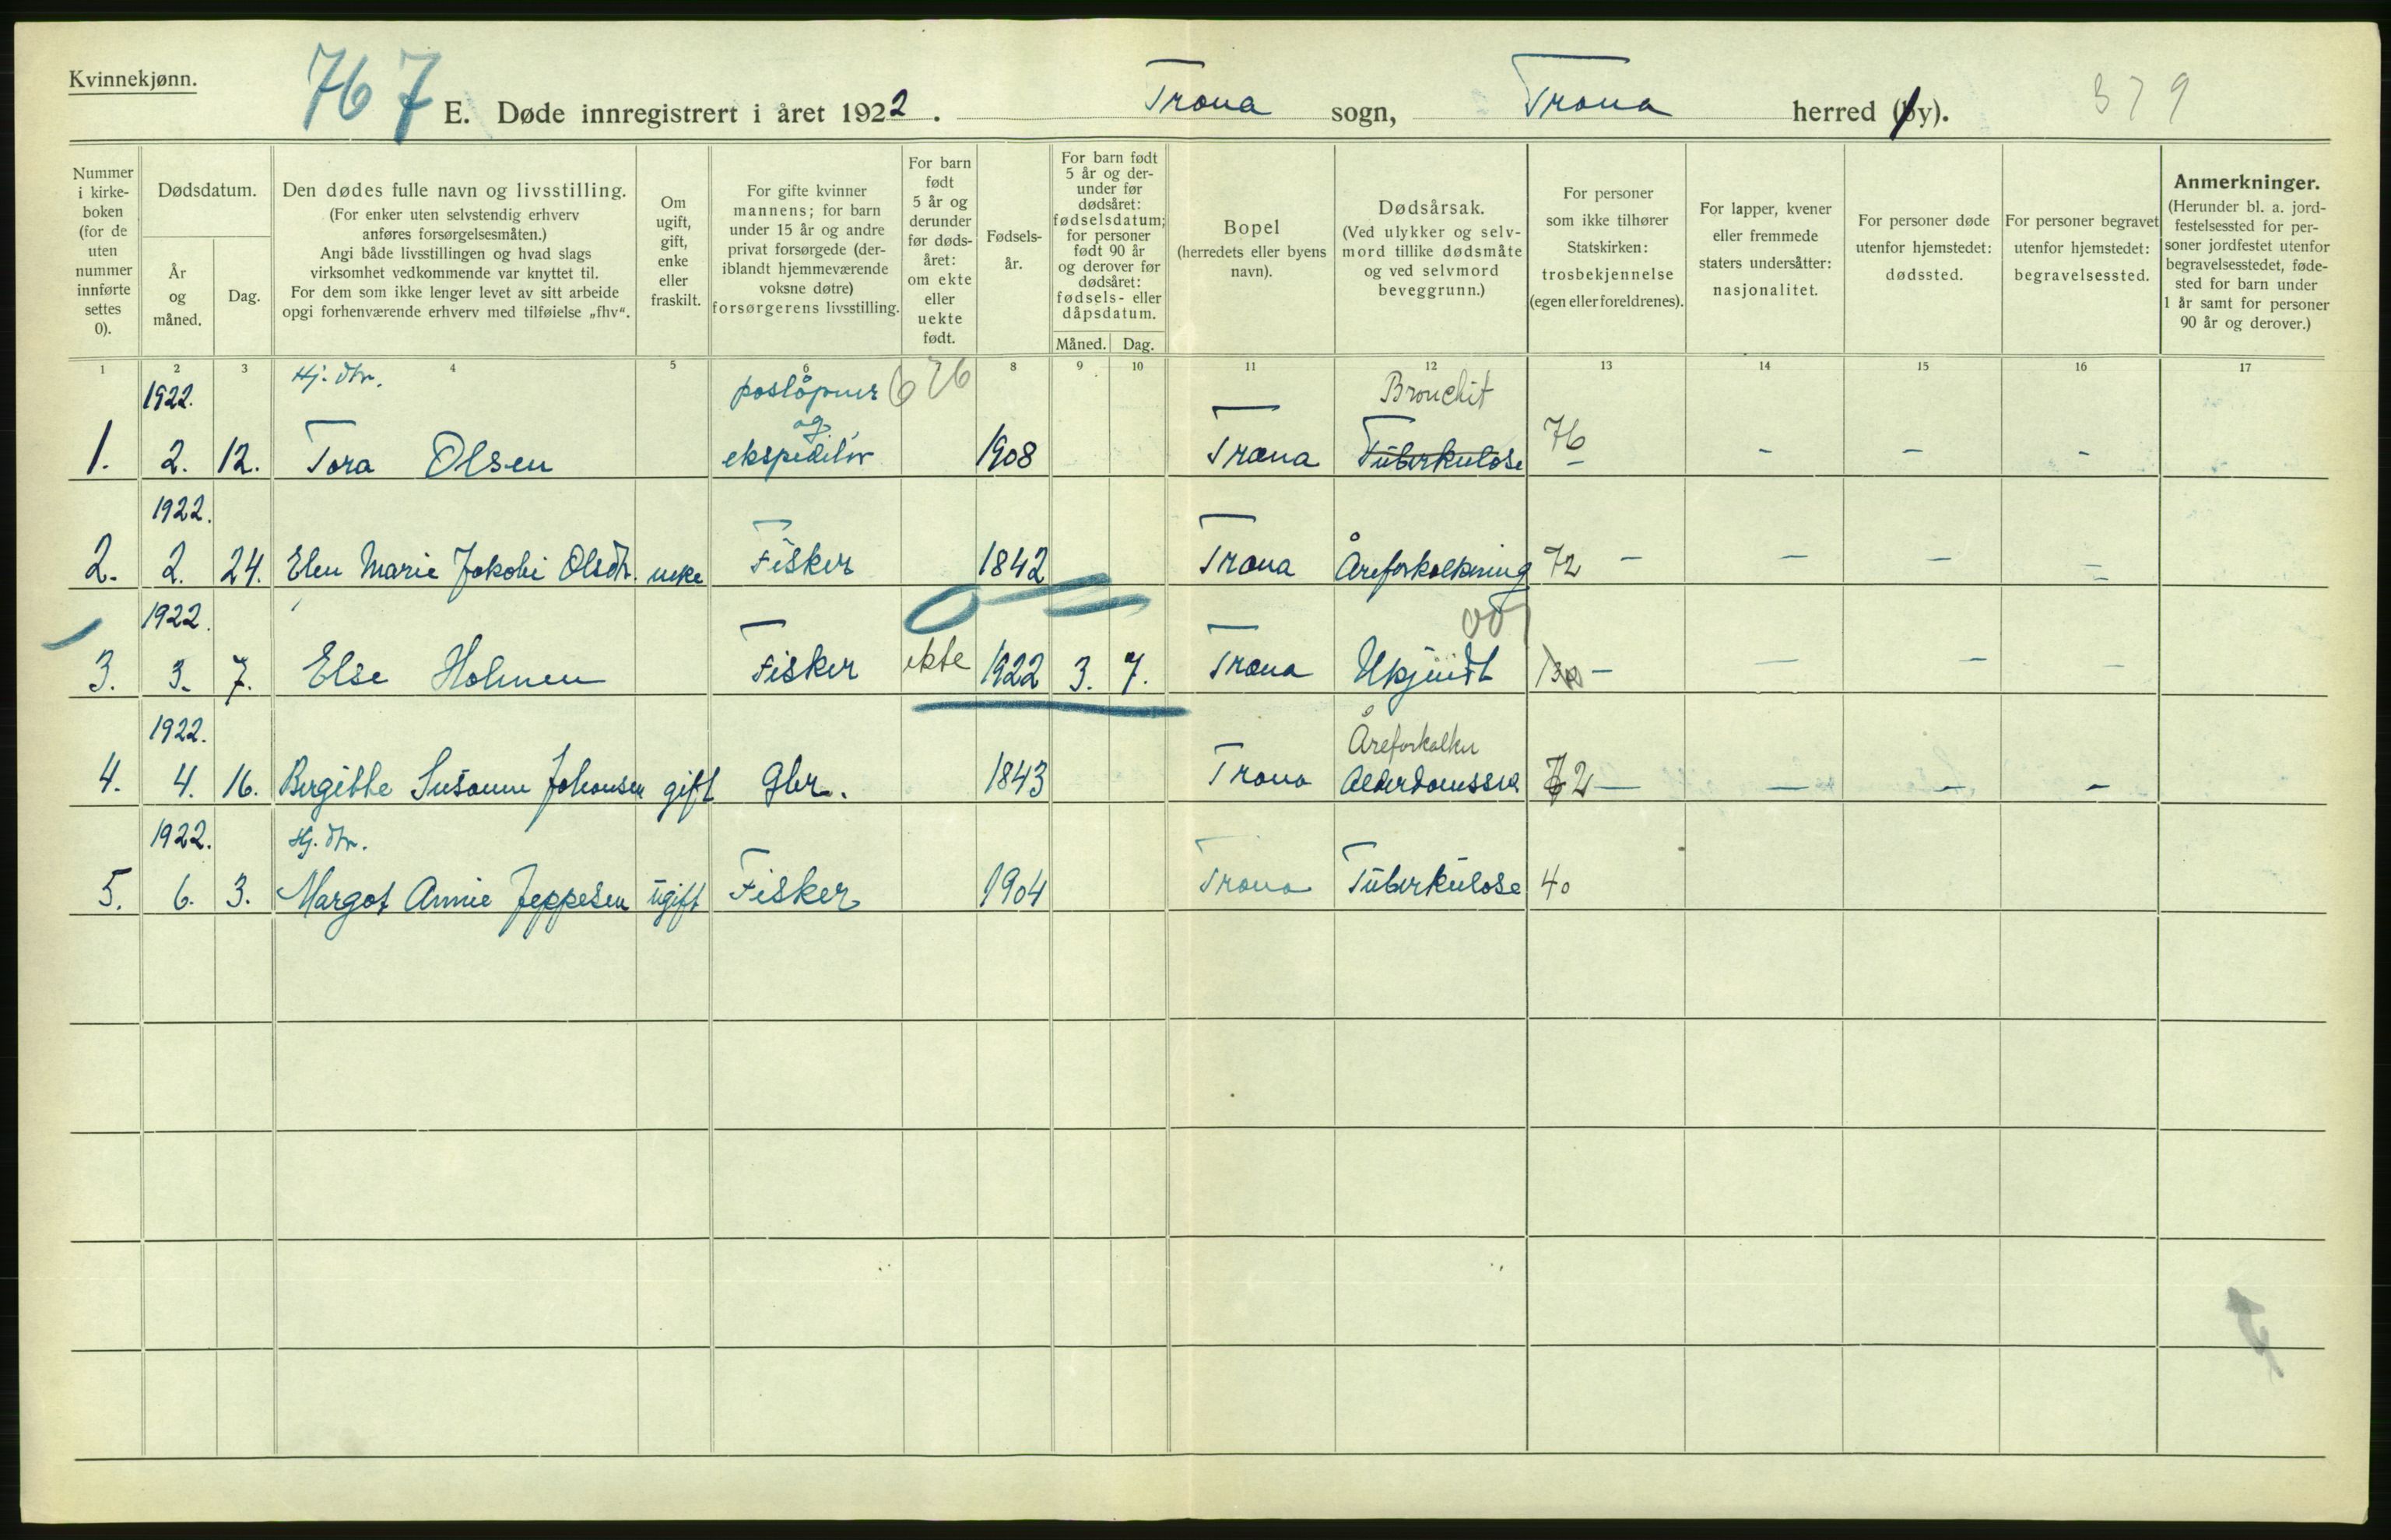 Kvinnekjønn.
767
E. Døde innregistrert i året 1922. Træna sogn, Træna herred (by).
379
Nummer i kirkeboken (for de uten nummer innførte settes 0).
Dødsdatum.
År og måned.
Dag.
Den dødes fulle navn og livsstilling.
(For enker uten selvstendig erhverv anføres forsørgelsesmåten.)
Angi både livsstillingen og hvad slags virksomhet vedkommende var knyttet til.
For dem som ikke lenger levet av sitt arbeide opgi forhenværende erhverv med tilføielse „fhv“.
Om ugift, gift, enke eller fraskilt.
For gifte kvinner mannens; for barn under 15 år og andre privat forsørgede (deriblandt hjemmeværende voksne døtre) forsørgerens livsstilling.
For barn født 5 år og derunder før dødsåret: om ekte eller uekte født.
Fødselsår.
For barn født 5 år og derunder før dødsåret: fødselsdatum; for personer født 90 år og derover før dødsåret: fødsels- eller dåpsdatum.
Måned. Dag.
Bopel
(herredets eller byens navn).
Dødsårsak.
(Ved ulykker og selvmord tillike dødsmåte og ved selvmord beveggrunn.)
For personer som ikke tilhører Statskirken: trosbekjennelse (egen eller foreldrenes).
For lapper, kvener eller fremmede staters undersåtter: nasjonalitet.
For personer døde utenfor hjemstedet: dødssted.
For personer begravet utenfor hjemstedet: begravelsessted.
Anmerkninger.
(Herunder bl. a. jordfestelsessted for personer jordfestet utenfor begravelsesstedet, fødested for barn under 1 år samt for personer 90 år og derover.)
1 2 3 4 5 6 8 9 10 11 12 13 14 15 16 17
1922. Hj. dtr. poståpner 626 Bronchit
og
1. 2. 12. Tora Olsen ekspeditør 1908 Træna Tuberkulose 76 - - - -
1922.
2. 2. 24. Elen Marie Jakobi Olsdtr. enke Fisker 1842 Træna Åreforkalkning 72 - - - -
1922.
3. 3. 7. Else Holmen Fisker ekte 1922 3. 7. Træna Ukjendt - - - -
1922. Åreforkalkn
4. 4. 16. Bergitthe Susanne Johansen gift Gbr. 1843 Træna Alderdomssv 72 - - - -
1922. Hj. dtr.
5. 6. 3. Margot Annie Jeppesen ugift Fisker 1904 Træna Tuberkulose 40